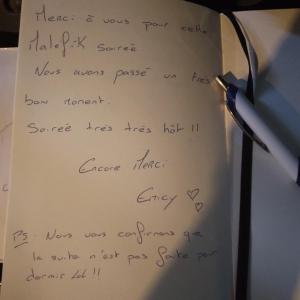 Merci à vous pour cette
MaLeFiK Soirée
Nous avons passé un très
bon moment.
Soirée très très hôt !!
Encore Merci
Emcy ♡♡
PS - Nous vous confirmons que
la suite n'est pas faite pour
dormir Lol !!